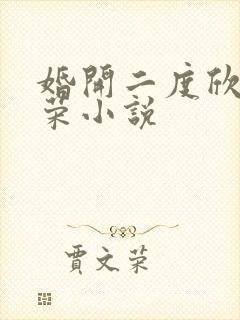 婚開二度欣
荣小説
賈文荣